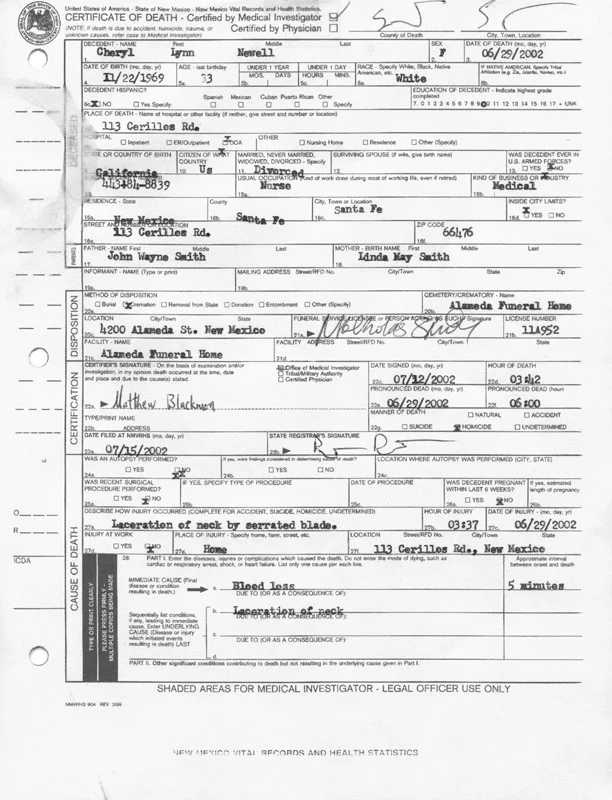 United States of America - State of New Mexico - New Mexico Vital Records and Health Statistics.
CERTIFICATE OF DEATH - Certified by Medical Investigator
(NOTE: If death is due to accident, homicide, trauma, or Certified by Physician
unknown causes, refer case to Medical Investigator) County of Death City, Town, Location
DECEDENT - NAME First Middle Last SEX DATE OF DEATH (mo, day, yr)
Cheryl Lynn Newell F 06/29/2002
DATE OF BIRTH (mo, day, yr) AGE - last birthday UNDER 1 YEAR UNDER 1 DAY RACE - Specify White, Black, Native American, etc. IF NATIVE AMERICAN, Specify Tribal
MOS. DAYS HOURS MINS.
11/22/1969 33 White
DECEDENT HISPANIC? Spanish Mexican Cuban Puerto Rican Other EDUCATION OF DECEDENT - Indicate highest grade completed
NO Yes Specify: Specify 7, 0 1 2 3 4 5 6 7 8 9 11 12 13 14 15 16 17 + UNK
PLACE OF DEATH - Name of hospital or other facility (if neither, give street and number or location)
113 Cerillos Rd.
HOSPITAL Inpatient ER/Outpatient DOA OTHER Nursing Home Residence Other (Specify)
STATE OR COUNTRY OF BIRTH CITIZEN OF WHAT COUNTRY MARRIED, NEVER MARRIED, WIDOWED, DIVORCED - Specify SURVIVING SPOUSE (if wife, give birth name) WAS DECEDENT EVER IN U.S. ARMED FORCES?
California US Divorced YES NO
443-84-8839 USUAL OCCUPATION (Kind of work done during most of working life, even if retired) KIND OF BUSINESS OR INDUSTRY
Nurse Medical
RESIDENCE - State County City, Town or Location INSIDE CITY LIMITS?
New Mexico Santa Fe Santa Fe YES NO
STREET AND NUMBER OR LOCATION ZIP CODE
113 Cerillos Rd. 66476
FATHER - NAME First Middle Last MOTHER - BIRTH NAME First Middle Last
John Wayne Smith Linda May Smith
INFORMANT - NAME (Type or print) MAILING ADDRESS Street/RFD No. City/Town State Zip
METHOD OF DISPOSITION CEMETERY/CREMATORY - Name
Burial Cremation Removal from State Donation Entombment Other (Specify) Alameda Funeral Home
LOCATION City/Town State FUNERAL SERVICE LICENSEE or PERSON ACTING AS SUCH / Signature LICENSE NUMBER
4200 Alameda St. New Mexico 114952
FACILITY - NAME FACILITY ADDRESS Street/RFD No. City/Town State
Alameda Funeral Home
CERTIFIER'S SIGNATURE - On the basis of examination and/or investigation, in my opinion death occurred at the time, date and place and due to the cause(s) stated. Office of Medical Investigator Tribal/Military Authority Certified Physician DATE SIGNED (mo, day, yr) HOUR OF DEATH
07/12/2002 03:42
Matthew Blackmon PRONOUNCED DEAD (mo, day, yr) PRONOUNCED DEAD (hour)
06/29/2002 05:00
TYPE/PRINT NAME MANNER OF DEATH NATURAL ACCIDENT
ADDRESS SUICIDE HOMICIDE UNDETERMINED
DATE FILED AT NMVRHS (mo, day, yr) STATE REGISTRAR'S SIGNATURE
07/15/2002
WAS AN AUTOPSY PERFORMED? If yes, were findings considered in determining cause of death? LOCATION WHERE AUTOPSY WAS PERFORMED (CITY, STATE)
YES NO YES NO
WAS RECENT SURGICAL PROCEDURE PERFORMED? IF YES, SPECIFY TYPE OF PROCEDURE DATE OF PROCEDURE WAS DECEDENT PREGNANT WITHIN LAST 6 WEEKS? If yes, estimated length of pregnancy
YES NO YES NO
DESCRIBE HOW INJURY OCCURRED (COMPLETE FOR ACCIDENT, SUICIDE, HOMICIDE, UNDETERMINED) HOUR OF INJURY DATE OF INJURY - (mo, day, yr)
Laceration of neck by serrated blade. 03:37 06/29/2002
INJURY AT WORK PLACE OF INJURY - Specify home, farm, street, etc. LOCATION Street/RFD No. City/Town State
YES NO Home 113 Cerillos Rd., New Mexico
28. PART I. Enter the diseases, injuries or complications which caused the death. Do not enter the mode of dying, such as cardiac or respiratory arrest, shock, or heart failure. List only one cause per each line. Approximate interval between onset and death
IMMEDIATE CAUSE (Final disease or condition resulting in death.) a. Blood loss 5 minutes
DUE TO (OR AS A CONSEQUENCE OF):
Sequentially list conditions, if any, leading to immediate cause. Enter UNDERLYING CAUSE (Disease or injury which initiated events resulting in death) LAST b. Laceration of neck
DUE TO (OR AS A CONSEQUENCE OF):
c.
DUE TO (OR AS A CONSEQUENCE OF):
d.
PART II. Other significant conditions contributing to death but not resulting in the underlying cause given in Part I.
DECEASED
PARENTS
DISPOSITION
CERTIFICATION
CAUSE OF DEATH
TYPE OR PRINT CLEARLY
PLEASE PRESS FIRMLY - MULTIPLE COPIES BEING MADE
O
R
ICDA
SHADED AREAS FOR MEDICAL INVESTIGATOR - LEGAL OFFICER USE ONLY
NMVRHS 904 REV. 3/98
NEW MEXICO VITAL RECORDS AND HEALTH STATISTICS